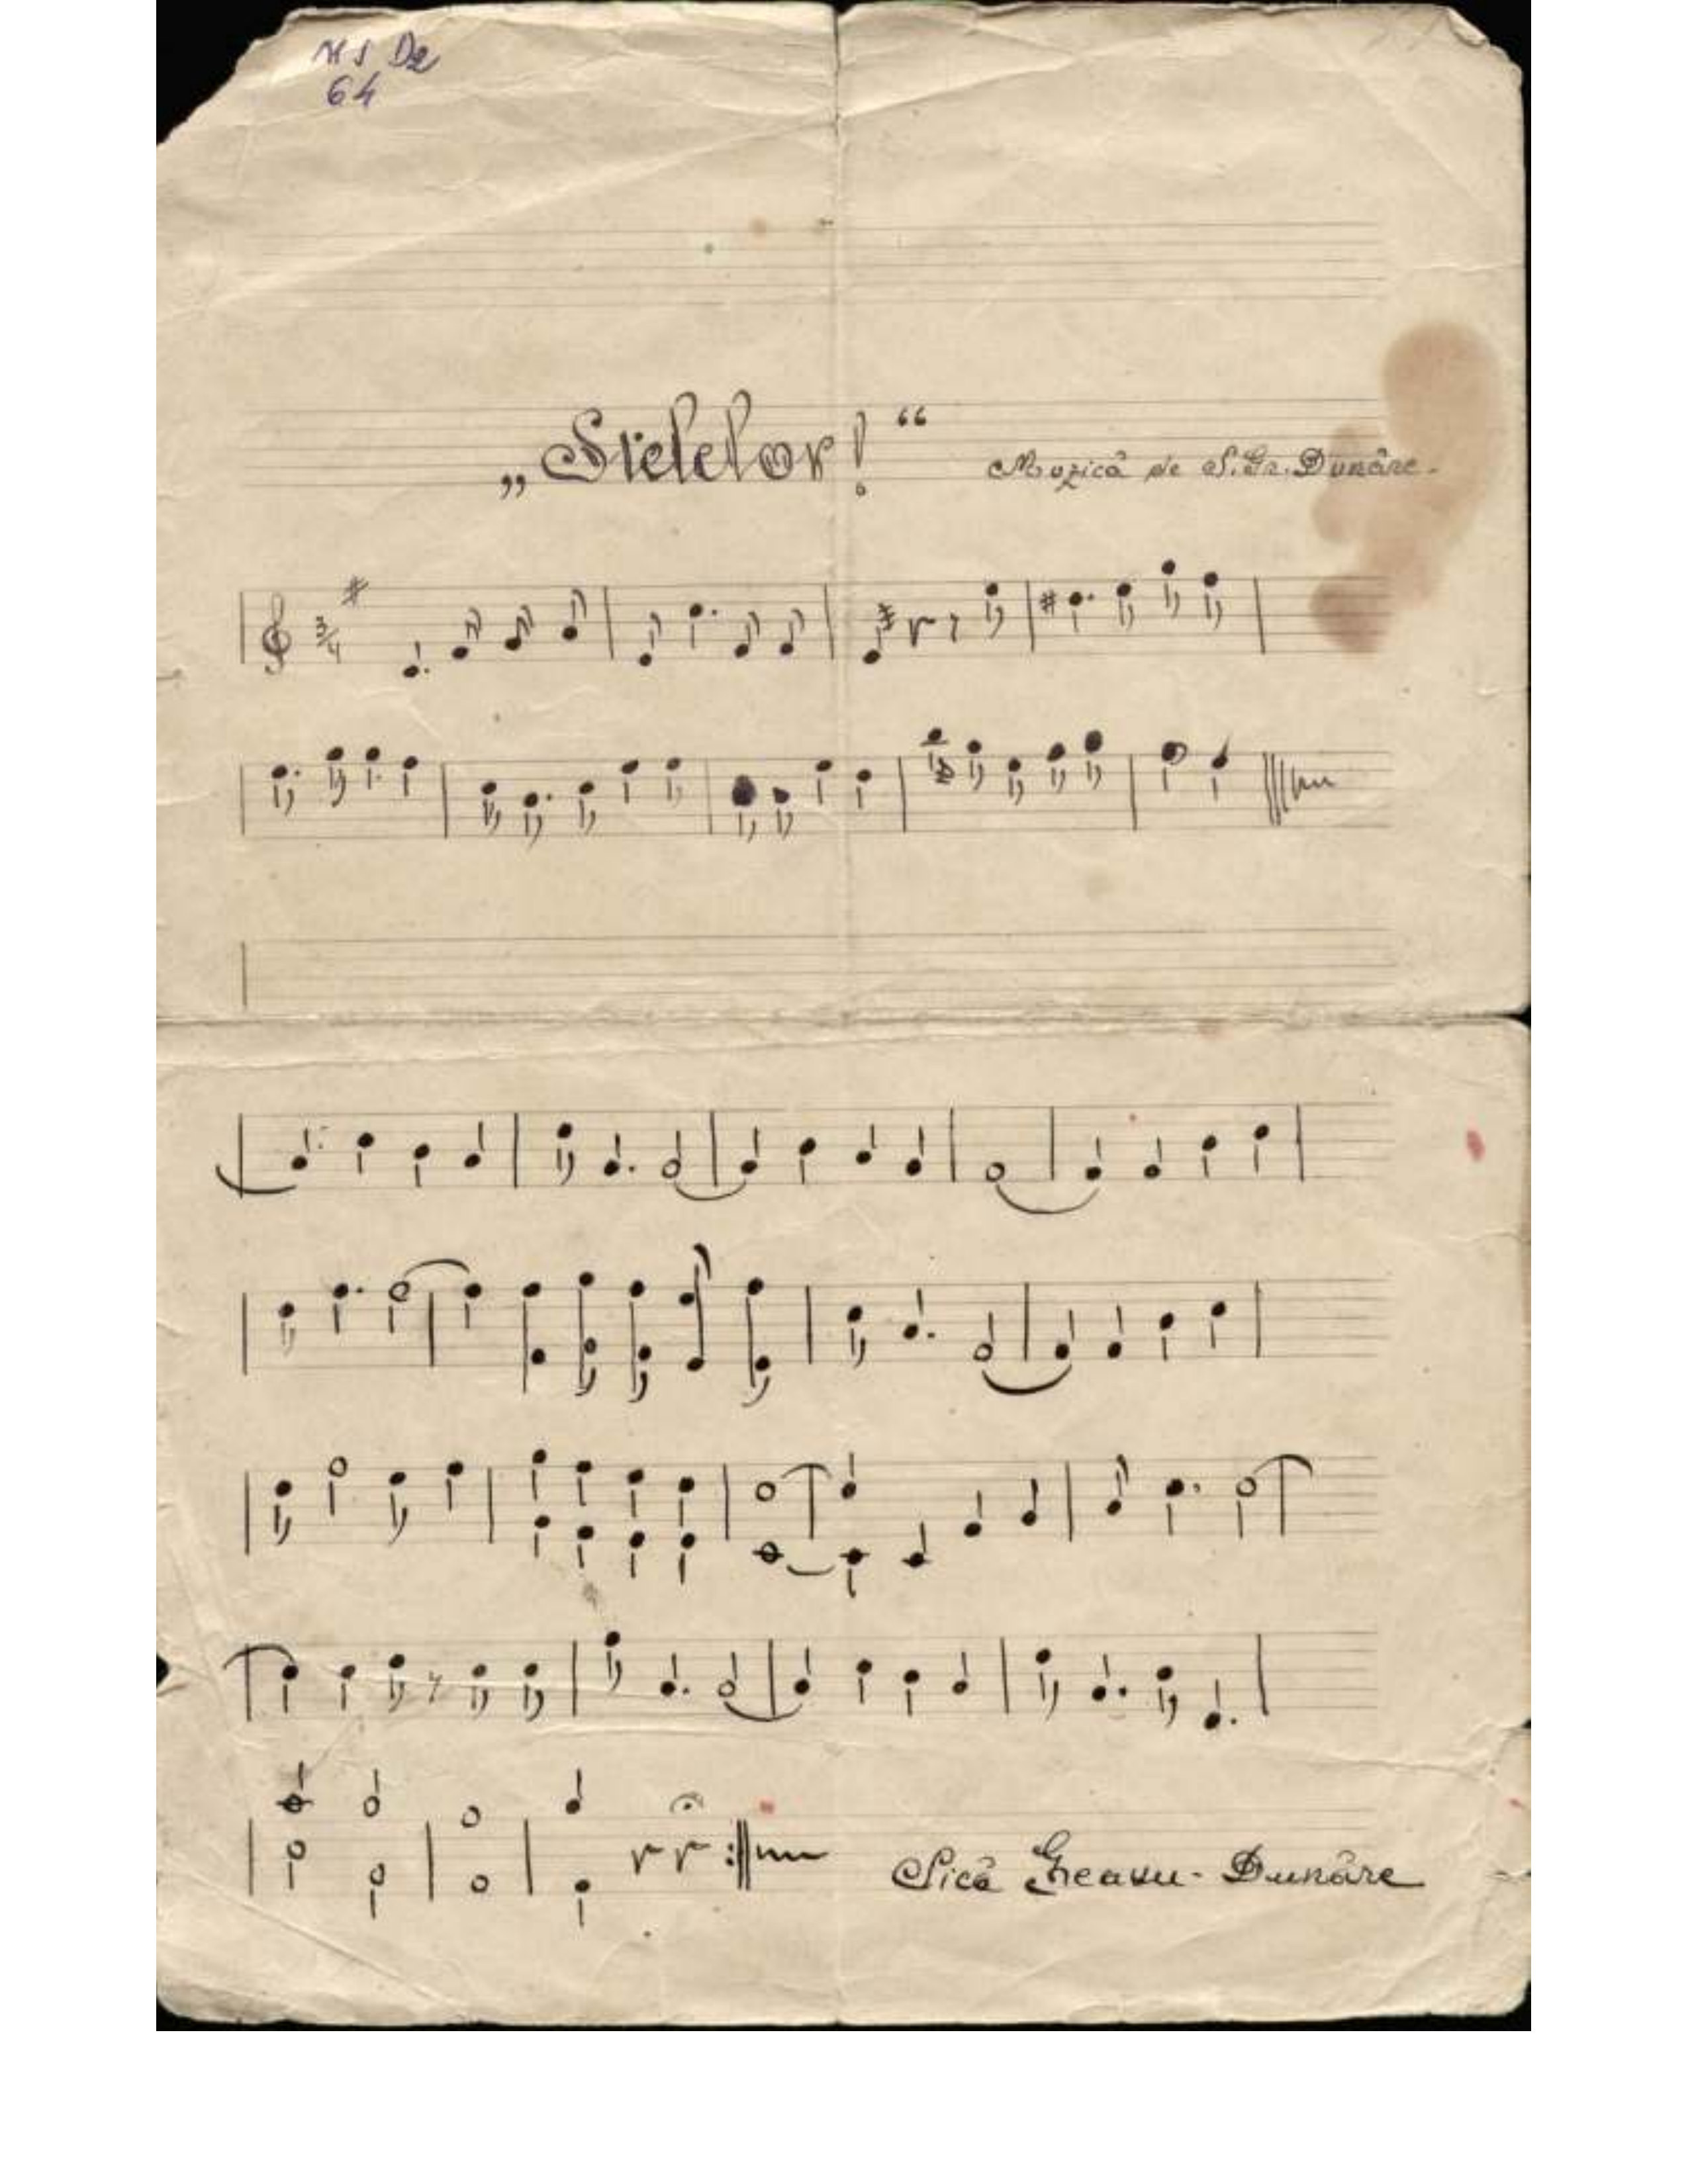 64
„Stelelor!“
Muzică de S. Gr. Dunăre.
3/4
Sică Greavu-Dunăre